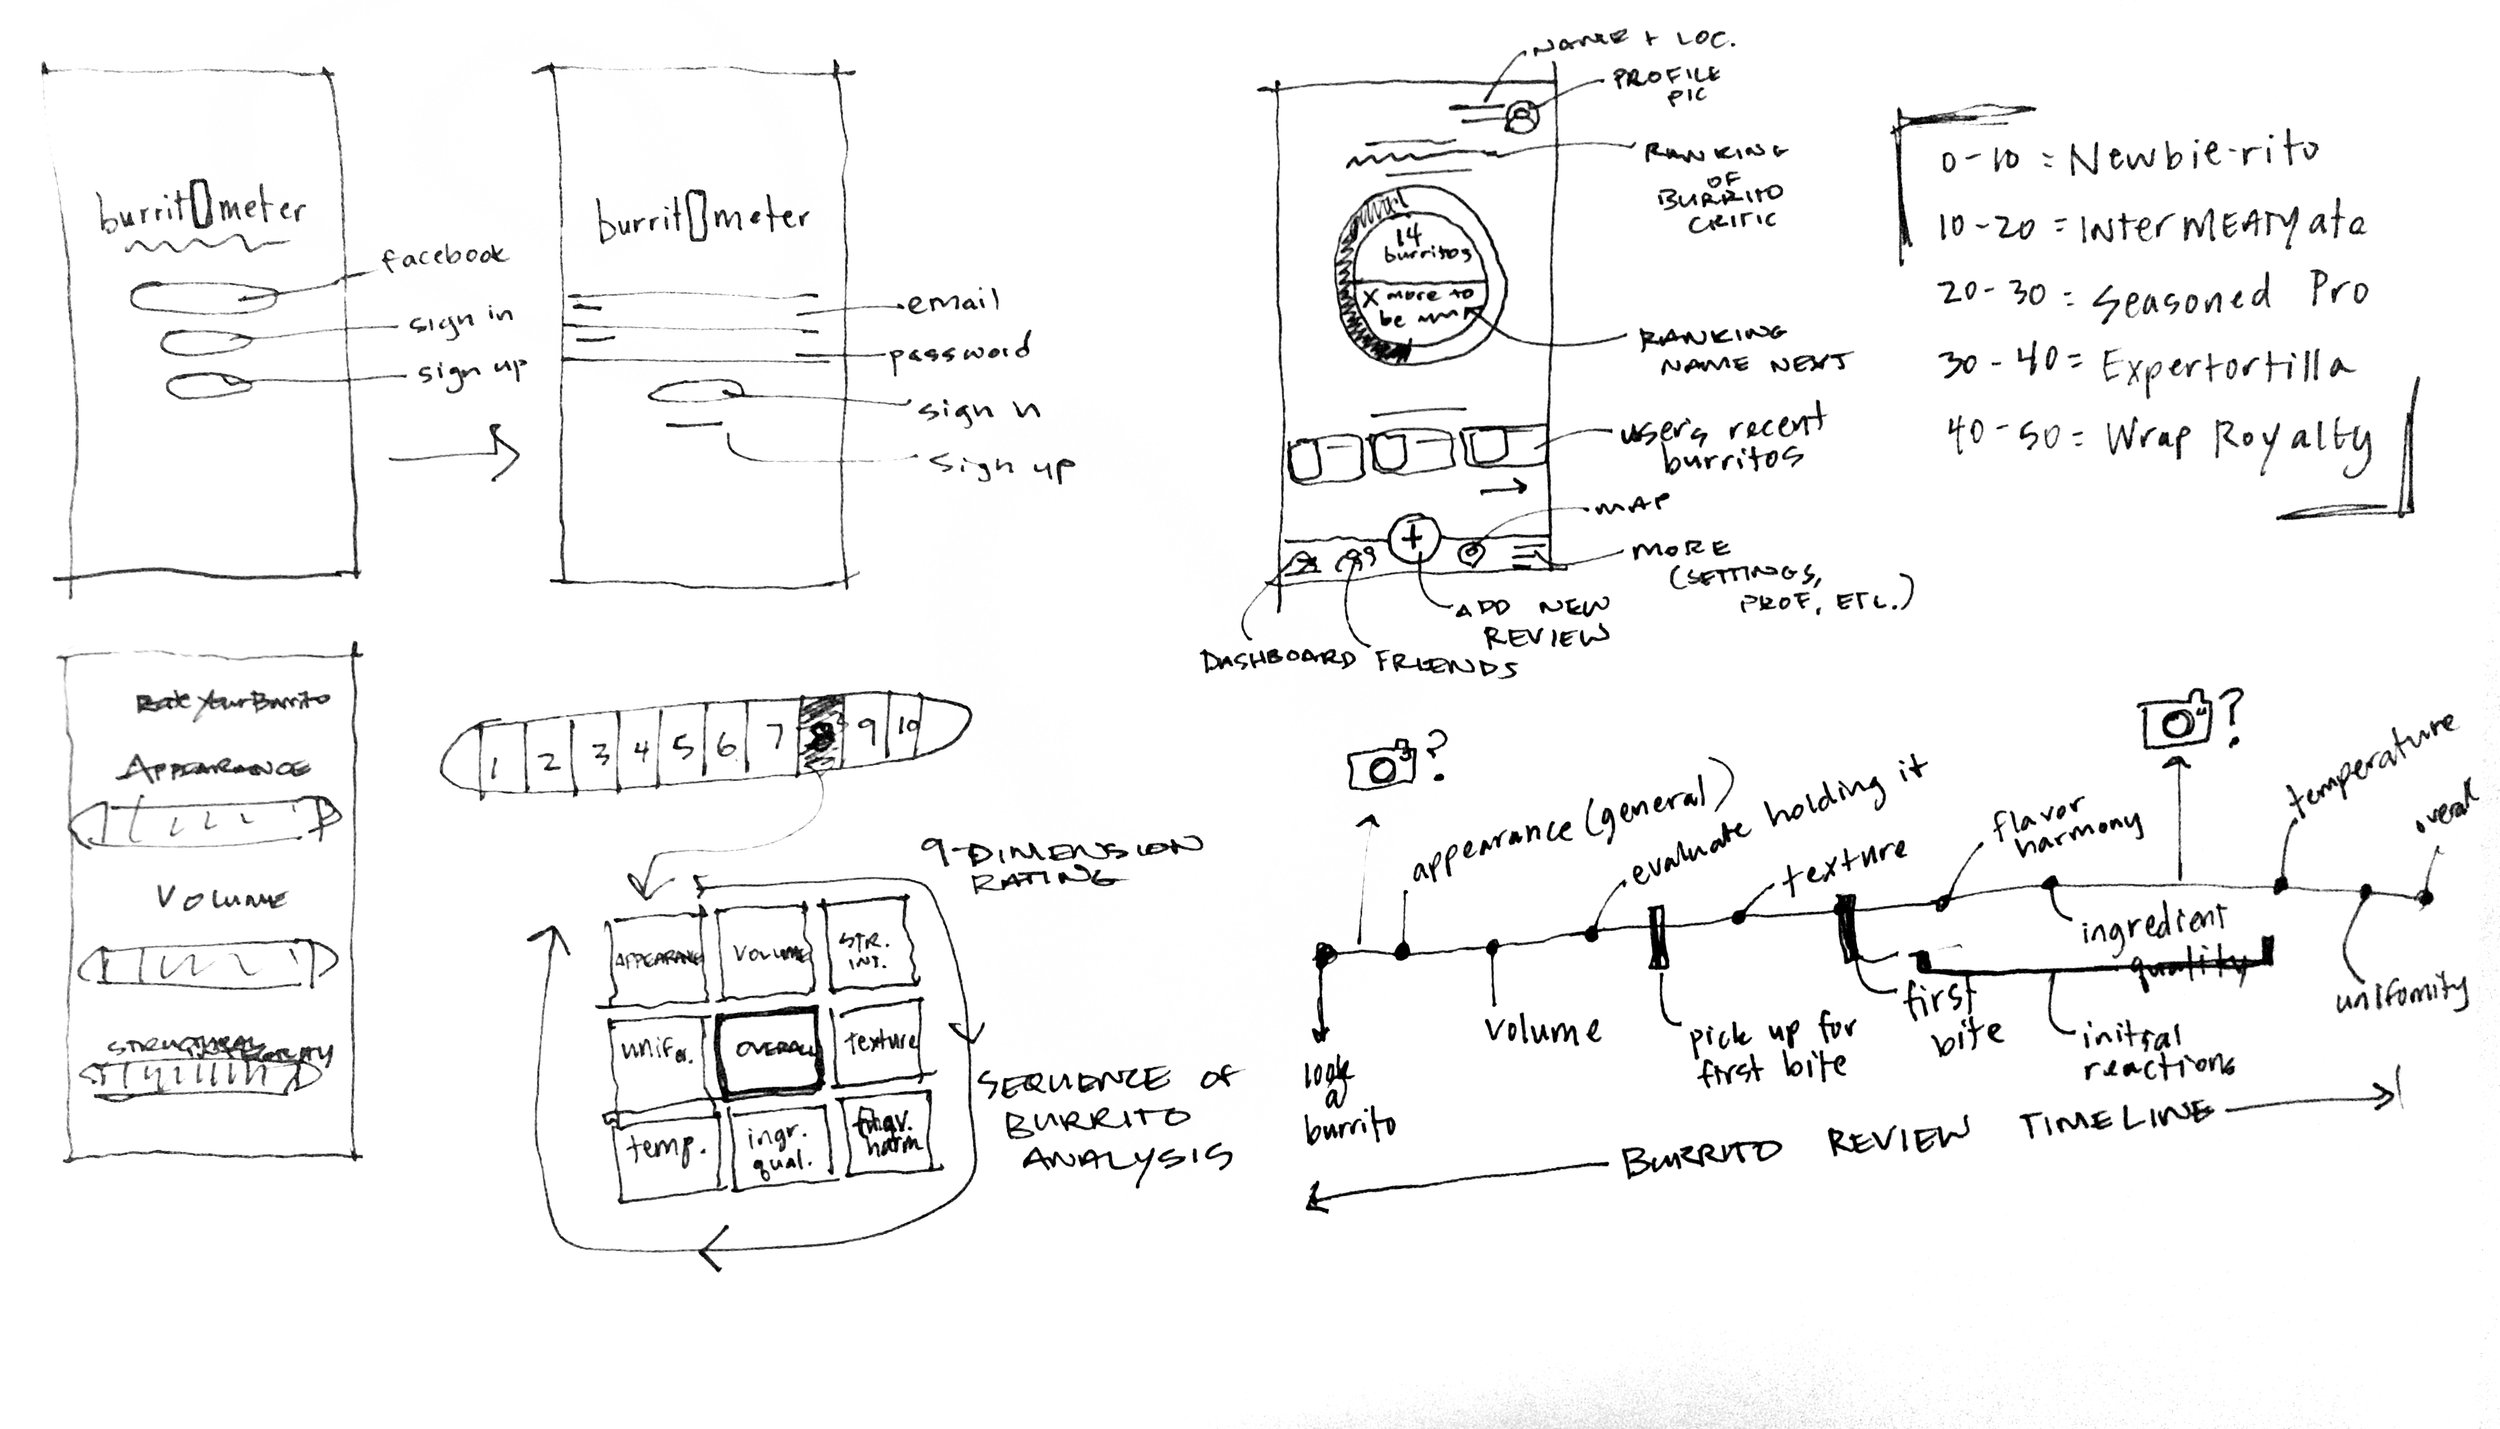 burritOmeter
facebook
sign in
sign up
burritOmeter
email
password
sign n
sign up
NAME + LOC.
PROFILE
PIC
RANKING
OF
BURRITO
CRITIC
14
burritos
X more to
be
RANKING
NAME NEXT
user's recent
burritos
MAP
MORE
(SETTINGS,
PROF, ETC.)
+
ADD NEW
REVIEW
DASHBOARD
FRIENDS
0-10 = Newbie-rito
10-20 = InterMEATyate
20-30 = Seasoned Pro
30-40 = Expertortilla
40-50 = Wrap Royalty
Rate Your Burrito
APPEARANCE
VOLUME
STRUCTURAL
INTEGRITY
1 2 3 4 5 6 7 8 9 10
9-DIMENSION
RATING
APPEARANCE
VOLUME
STR.
INT.
unifor.
OVERALL
texture
temp.
ingr.
qual.
harm.
SEQUENCE OF
BURRITO
ANALYSIS
?
appearance (general)
evaluate holding it
texture
flavor
harmony
?
temperature
overall
look
@
burrito
volume
pick up for
first bite
first
bite
ingredient
quality
initial
reactions
unifomity
BURRITO REVIEW TIMELINE